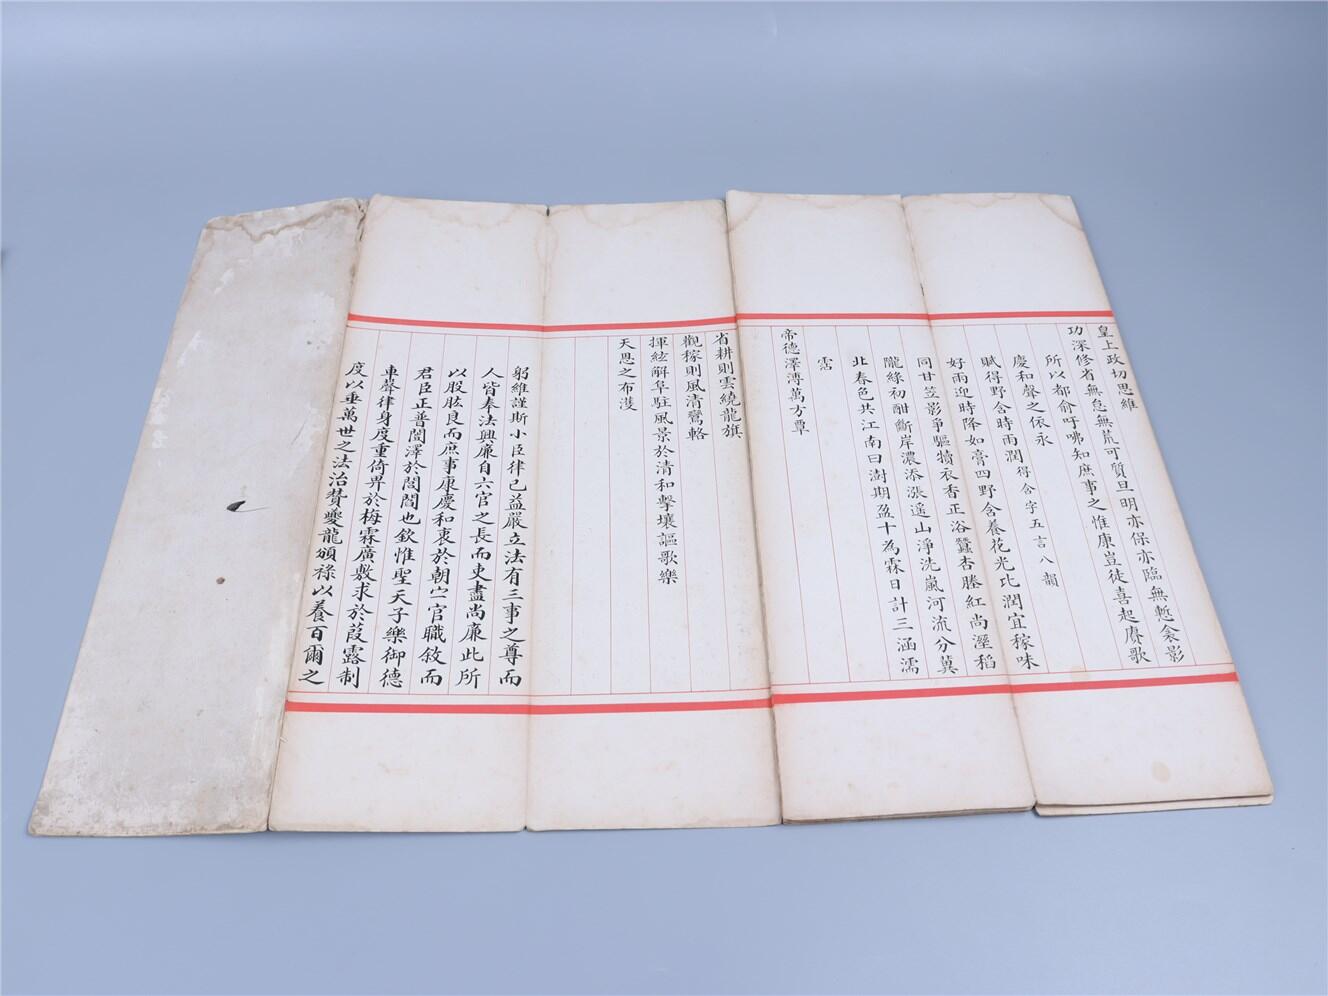 皇上政切思維
功深修省無怠無荒可質旦明亦保亦臨無慙衾影
所以都俞吁咈知庶事之惟康豈徒喜起賡歌
慶和聲之依永
賦得野含時雨潤得含字五言八韻
好雨迎時降如膏四野含養花光比潤宜稼味
同甘笠影爭驅犢衣香正浴蠶杏塍紅尚溼稻
隴綠初酣斷岸濃添漲遙山淨洗嵐河流分冀
北春色共江南曰澍期盈十為霖日計三涵濡
霑
帝德澤溥萬方覃
省耕則雲繞龍旗
觀稼則風清鸞輅
揮絃解阜駐風景於清和擊壤謳歌樂
天恩之布濩
躬維謹斯小臣律已益嚴立法有三事之尊而
人皆奉法興廉自六官之長而吏盡尚廉此所
以股肱良而庶事康慶和衷於朝宀官職敘而
君臣正普闓澤於閭閻也欽惟聖天子樂御德
車聲律身度重倚畀於梅霖廣敷求於葭露制
度以垂萬世之法治贊夔龍頒祿以養百爾之